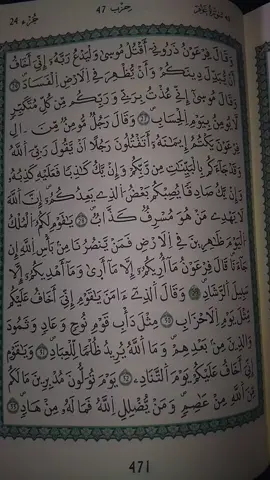 جُزْء 24 حِزْب 47
وَقَالَ فِرْعَوْنُ ذَرُونِيٓ أَقْتُلْ مُوسَىٰ وَلْيَدْعُ رَبَّهُۥٓ إِنِّيَ أَخَافُ
أَنْ يُّبَدِّلَ دِينَكُمْ وَأَنْ يُّظْهِرَ فِي اِلَارْضِ اِلْفَسَادَ
وَقَالَ مُوسَىٰٓ إِنِّي عُذْتُ بِرَبِّي وَرَبِّكُم مِّن كُلِّ مُتَكَبِّرٍ
لَّا يُومِنُ بِيَوْمِ اِلْحِسَابِ وَقَالَ رَجُلٌ مُّومِنٌ مِّنَ اٰلِ
فِرْعَوْنَ يَكْتُمُ إِيمَٰنَهُۥٓ أَتَقْتُلُونَ رَجُلًا اَنْ يَّقُولَ رَبِّيَ اَللَّهُ
وَقَدْ جَآءَكُم بِالْبَيِّنَٰتِ مِن رَّبِّكُمْ وَإِنْ يَّكُ كَٰذِبًا فَعَلَيْهِ كَذِبُهُۥ
وَإِنْ يَّكُ صَادِقًا يُصِبْكُم بَعْضُ اُلَّذِي يَعِدُكُمْ إِنَّ اَللَّهَ
لَا يَهْدِي مَنْ هُوَ مُسْرِفٌ كَذَّابٌ يَٰقَوْمِ لَكُمُ اُلْمُلْكُ
اُلْيَوْمَ ظَٰهِرِينَ فِي اِلَارْضِ فَمَنْ يَّنصُرُنَا مِنۢ بَأْسِ اِللَّهِ إِن
جَآءَنَا قَالَ فِرْعَوْنُ مَآ أُرِيكُمُۥٓ إِلَّا مَآ أَرَىٰ وَمَآ أَهْدِيكُمُۥٓ إِلَّا
سَبِيلَ اَلرَّشَادِ وَقَالَ اَلَّذِيٓ ءَامَنَ يَٰقَوْمِ إِنِّيَ أَخَافُ عَلَيْكُم
مِّثْلَ يَوْمِ اِلَاحْزَابِ مِثْلَ دَأْبِ قَوْمِ نُوحٍ وَعَادٍ وَثَمُودَ
وَالَّذِينَ مِنۢ بَعْدِهِمْ وَمَا اَللَّهُ يُرِيدُ ظُلْمًا لِّلْعِبَادِ وَيَٰقَوْمِ
إِنِّيَ أَخَافُ عَلَيْكُمْ يَوْمَ اَلتَّنَادِ يَوْمَ تُوَلُّونَ مُدْبِرِينَ مَا لَكُم
مِّنَ اَللَّهِ مِنْ عَاصِمٍ وَمَنْ يُّضْلِلِ اِللَّهُ فَمَا لَهُۥ مِنْ هَادٍ
471